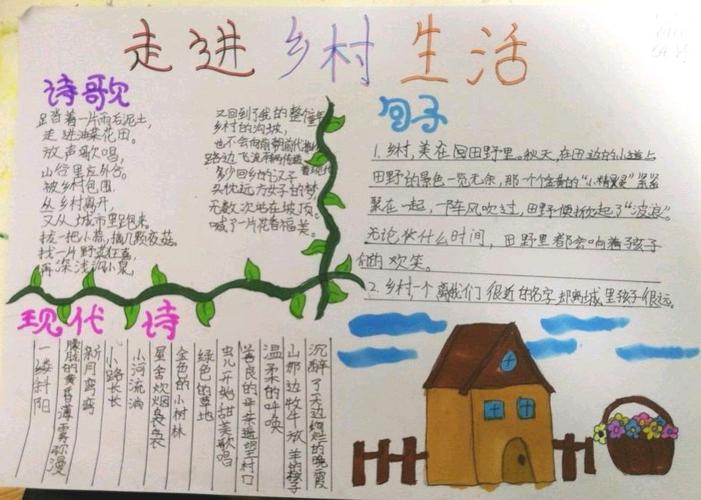 走进乡村生活
诗歌
足踏着一片雨后泥土,
走进油菜花田。
放声歌唱,
山行里左外谷。
被乡村包围
从乡村离开,
又从城市里跑来。
拔一把小蒜,摘几颗夜菇。
找一片野
再深浅沉小泉,
又回到了我的整个
乡村的沟坡,
也不会向
路边飞流
多少回乡的汉子
头枕远方女子的梦
无数次站在坡顶。
喊了一片花香福美。
句子
1.乡村,美在田野里。秋天,在田边的小道上
田野的景色一览无余,那一个个金黄的“小精灵”紧紧
聚在一起,一阵风吹过,田野便掀起了“波浪”。
无论什么时间,田野里都会响着孩子
们的欢笑。
2.乡村一个离我们很近的名字却离城里孩子很远。
现代诗
沉醉了天边绚烂的晚霞
山那边牧牛放羊的孩子
温柔的呼唤
善良的母亲村口
虫儿开始甜美歌唱
绿色的草地
金色的小树林
星舍炊烟袅袅
小河流淌
小路长长
新月弯弯
朦胧的黄昏薄雾弥漫
一缕斜阳